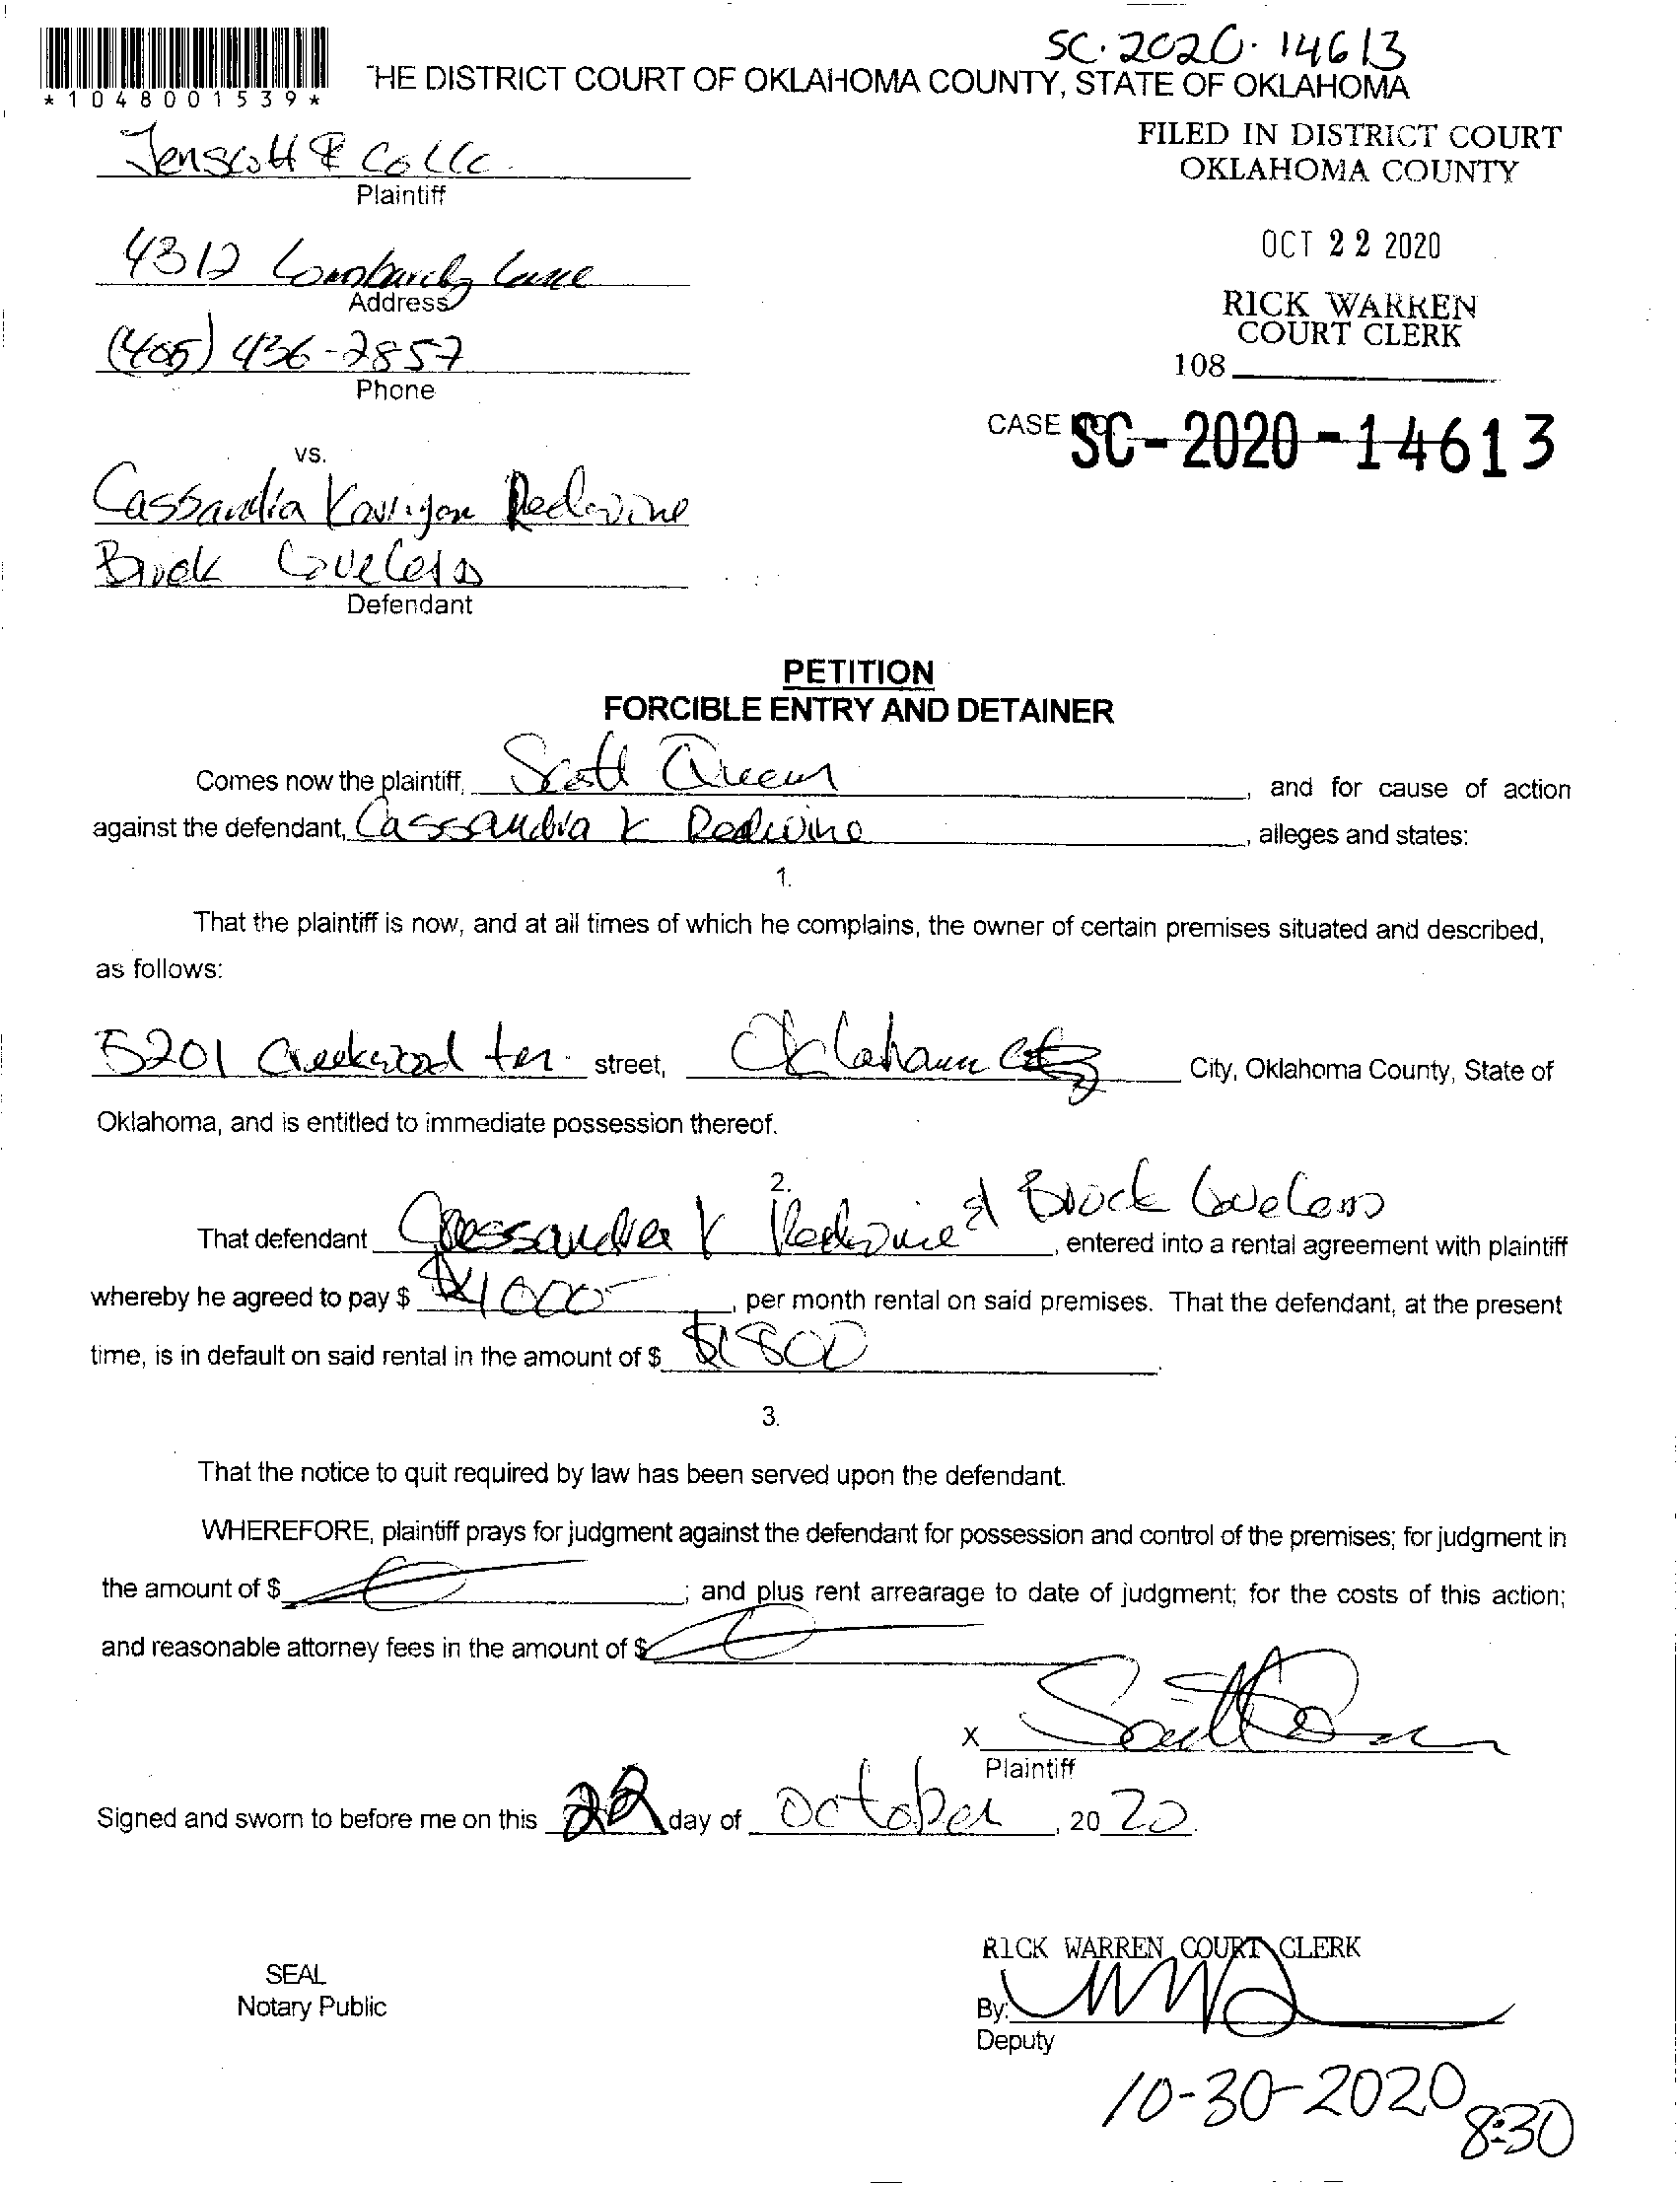 SC-2020-14613
*1048001539*
THE DISTRICT COURT OF OKLAHOMA COUNTY, STATE OF OKLAHOMA
Jenscott & Co LLC.
Plaintiff
FILED IN DISTRICT COURT
OKLAHOMA COUNTY
4312 Lombardy Lane
Address
OCT 22 2020
(405) 436-2857
Phone
RICK WARREN
COURT CLERK
108
CASE NO. SC-2020-14613
vs.
Cassandra Redwine
Brock Loveless
Defendant
PETITION
FORCIBLE ENTRY AND DETAINER
Comes now the plaintiff, Scott Queen, and for cause of action
against the defendant, Cassandra K Redwine, alleges and states:
1.
That the plaintiff is now, and at all times of which he complains, the owner of certain premises situated and described,
as follows:
5201 Creekwood ter. street, Oklahoma City City, Oklahoma County, State of
Oklahoma, and is entitled to immediate possession thereof.
2.
That defendant Cassandra K Redwine & Brock Loveless, entered into a rental agreement with plaintiff
whereby he agreed to pay $ $1000-, per month rental on said premises. That the defendant, at the present
time, is in default on said rental in the amount of $ $1800.
3.
That the notice to quit required by law has been served upon the defendant.
WHEREFORE, plaintiff prays for judgment against the defendant for possession and control of the premises; for judgment in
the amount of $ ; and plus rent arrearage to date of judgment; for the costs of this action;
and reasonable attorney fees in the amount of $
X Scott Queen
Plaintiff
Signed and sworn to before me on this 22 day of October, 2020.
RICK WARREN COURT CLERK
SEAL
Notary Public
By:
Deputy
10-30-2020
8:30